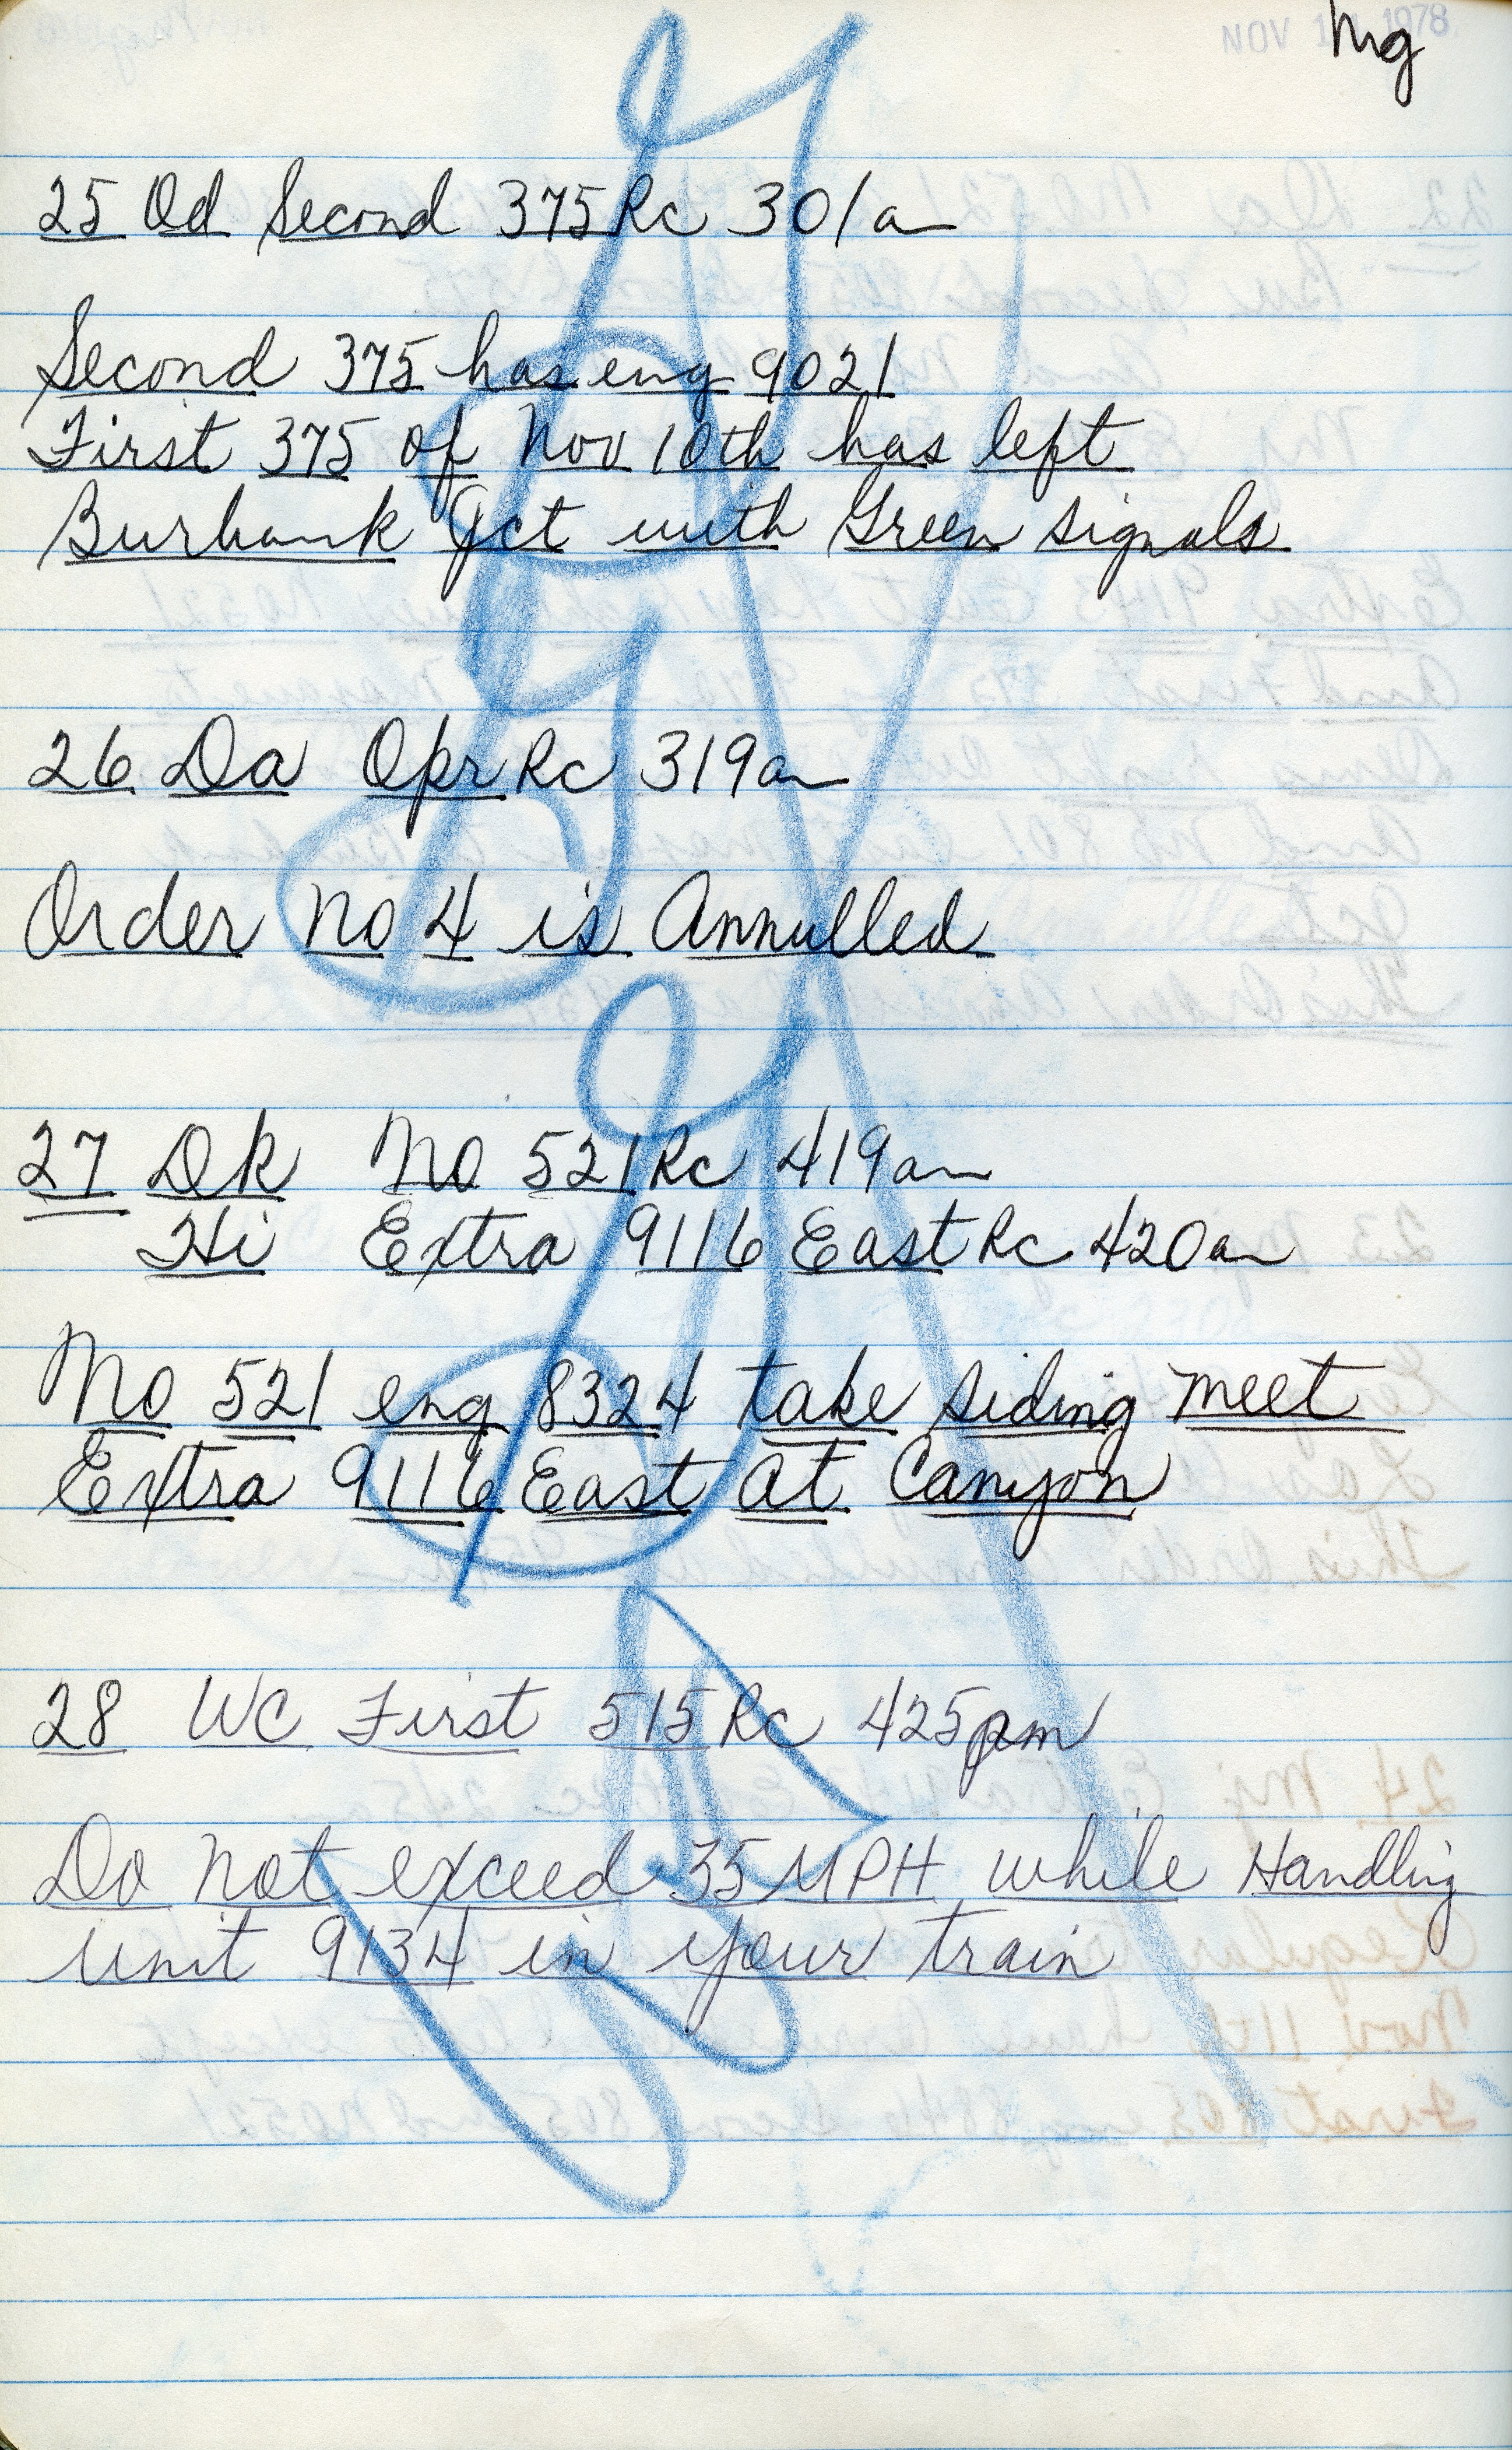 NOV 1 1978
mg
25 Od Second 375 Rc 301a
Second 375 has eng 9021
First 375 of Nov 10th has left
Burbank Jct with Green signals
26 Da Opr Rc 319a
Order No 4 is Annulled
27 Dk No 521 Rc 419am
Hi Extra 9116 East Rc 420a
No 521 eng 8324 take siding meet
Extra 9116 East at Canyon
28 WC First 515 Rc 425pm
Do not exceed 35 MPH while Handling
unit 9134 in your train